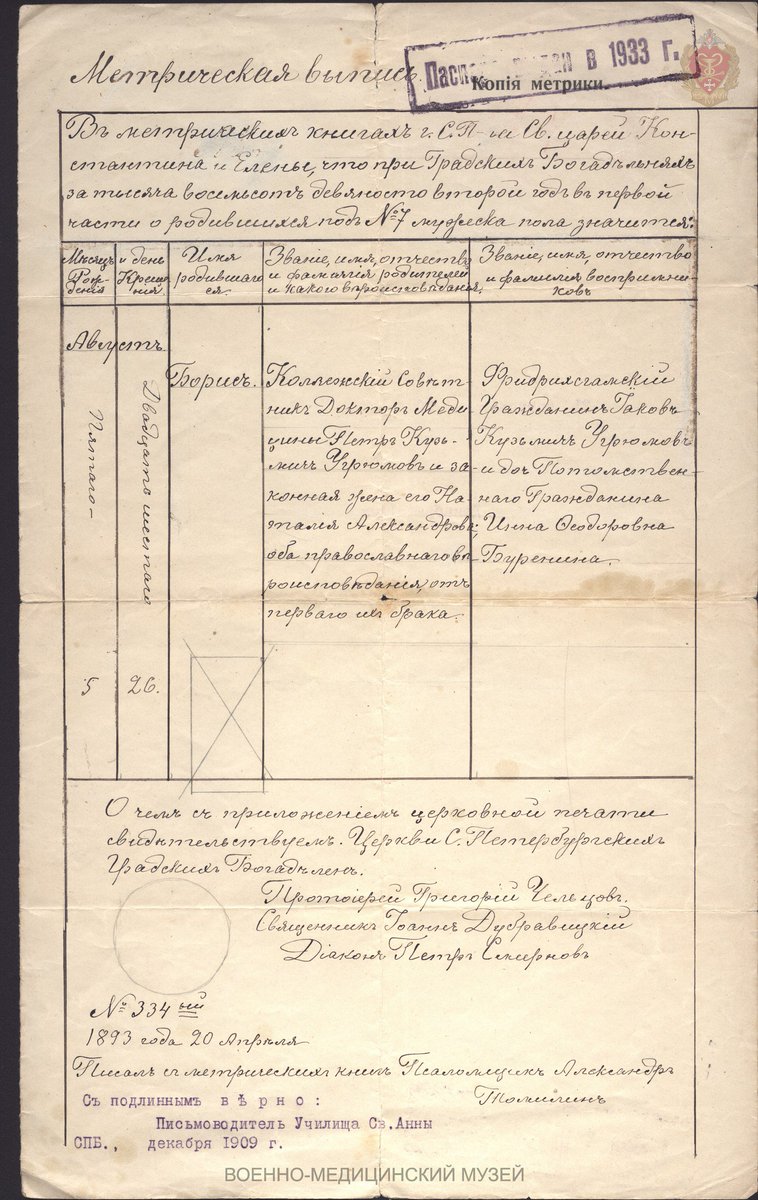 Метрическая выпись
Паспорт выдан в 1933 г.
Копія метрики.
Въ метрическихъ книгахъ г. С. П-га Св. царей Кон-
стантина и Елены, что при Градскихъ Богадѣльняхъ
за тысяча восемьсотъ девяносто второй годъ въ первой
части о родившихся подъ № 7 мужеска пола значится:
Мѣсяцъ и день
Рож-
денія
Креще-
нія
Имя
родившаго-
ся.
Званіе, имя, отчество
и фамилія родителей
и какого вѣроисповѣданія.
Званіе, имя, отчество
и фамилія воспріемни-
ковъ
Августъ.
Пятаго
Двадцать шестаго
Борисъ.
Коллежскій Совѣт-
никъ Докторъ Меди-
цины Петръ Кузь-
мичъ Угрюмовъ и за-
конная жена его На-
талія Александрова;
оба православнаго вѣ-
роисповѣданія, отъ
перваго ихъ брака.
Фридрихсгамскій
Гражданинъ Іаковъ
Кузьмичъ Угрюмовъ
и дочь Потомствен-
наго Гражданина
Анна Ѳеодоровна
Буренина.
5
26.
О чемъ съ приложеніемъ церковной печати
свидѣтельствуемъ. Церкви С. Петербургскихъ
Градскихъ Богадѣленъ.
Протоіерей Григорій Чельцовъ.
Священникъ Іоаннъ Дубравицкій
Діаконъ Петръ Смирновъ
№ 334 ый
1893 года 20 Апрѣля
Писалъ съ метрическихъ книгъ Псаломщикъ Александръ
Томилинъ
Съ подлиннымъ вѣрно:
Письмоводитель Училища Св. Анны
СПБ., декабря 1909 г.
ВОЕННО-МЕДИЦИНСКИЙ МУЗЕЙ